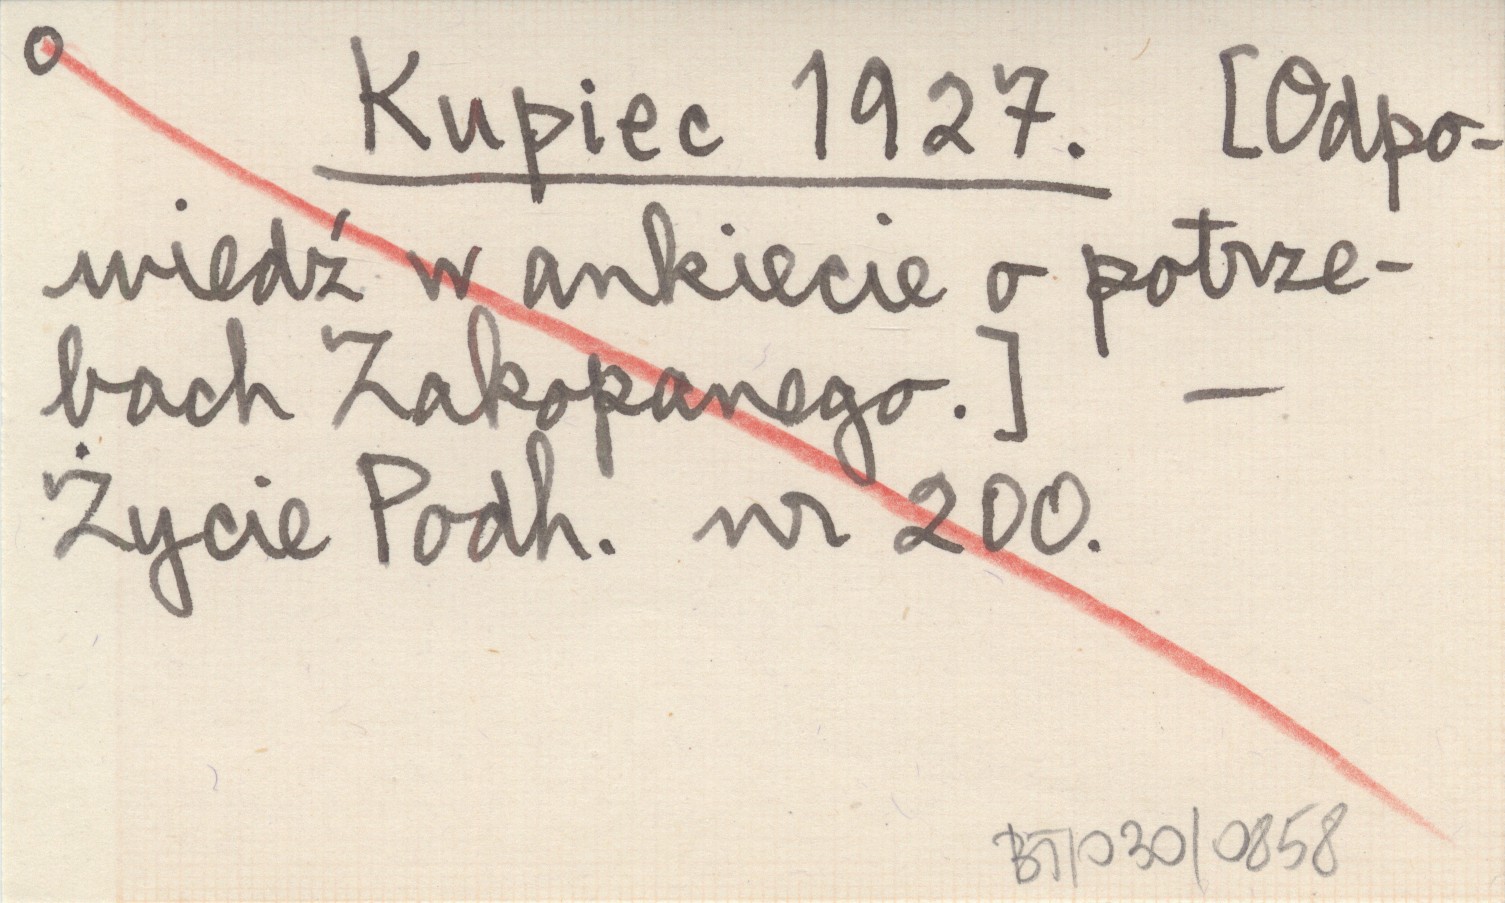 o Kupiec 1927. [Odpo-
wiedź w ankiecie o potrze-
bach Zakopanego.] —
Życie Podh. nr 200.
BT/030/0858